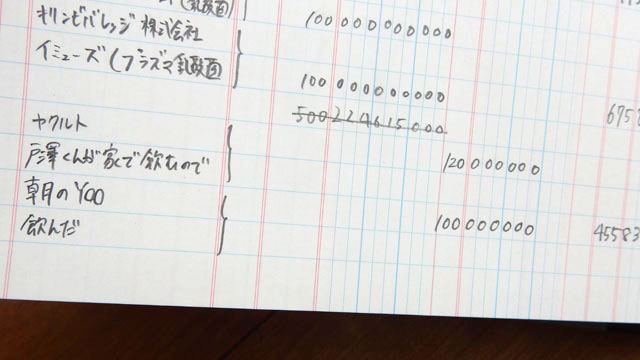 (乳酸菌)
キリンビバレッジ 株式会社
100000000000
イミューズ(プラズマ乳酸菌
100000000000
500224615000
ヤクルト
戸澤くんが家で飲むので
120000000
朝のY00
飲んだ
100000000
45583